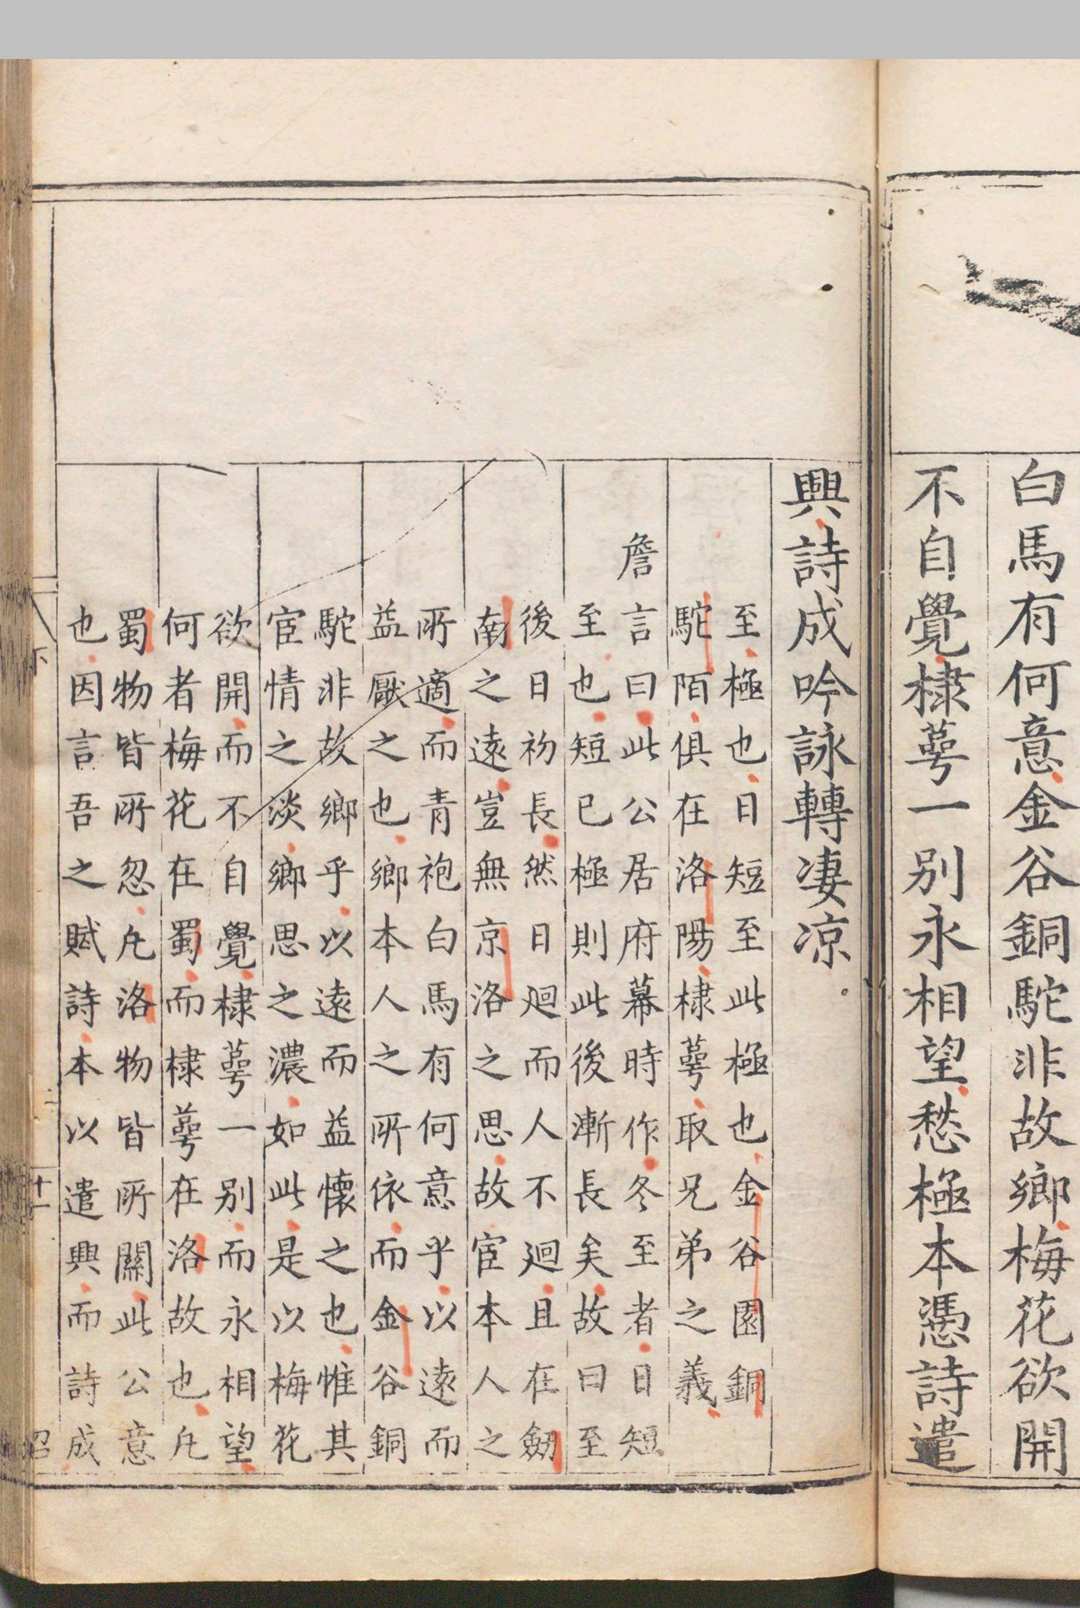 白馬有何意金谷銅駝非故鄉梅花欲開
不自覺棣萼一别永相望愁極本憑詩遣
興詩成吟詠轉凄凉
至極也日短至此極也金谷園銅
駝陌俱在洛陽棣萼取兄弟之義
詹言曰此公居府幕時作冬至者日短
至也短已極則此後漸長矣故曰至
後日初長然日廻而人不廻且在劒
南之遠豈無京洛之思故宦本人之
所適而青袍白馬有何意乎以遠而
益厭之也鄉本人之所依而金谷銅
駝非故鄉乎以遠而益懷之也惟其
宦情之淡鄉思之濃如此是以梅花
欲開而不自覺棣萼一别而永相望
何者梅花在蜀而棣萼在洛故也凡
蜀物皆所忽凡洛物皆所關此公意
也因言吾之賦詩本以遣興而詩成